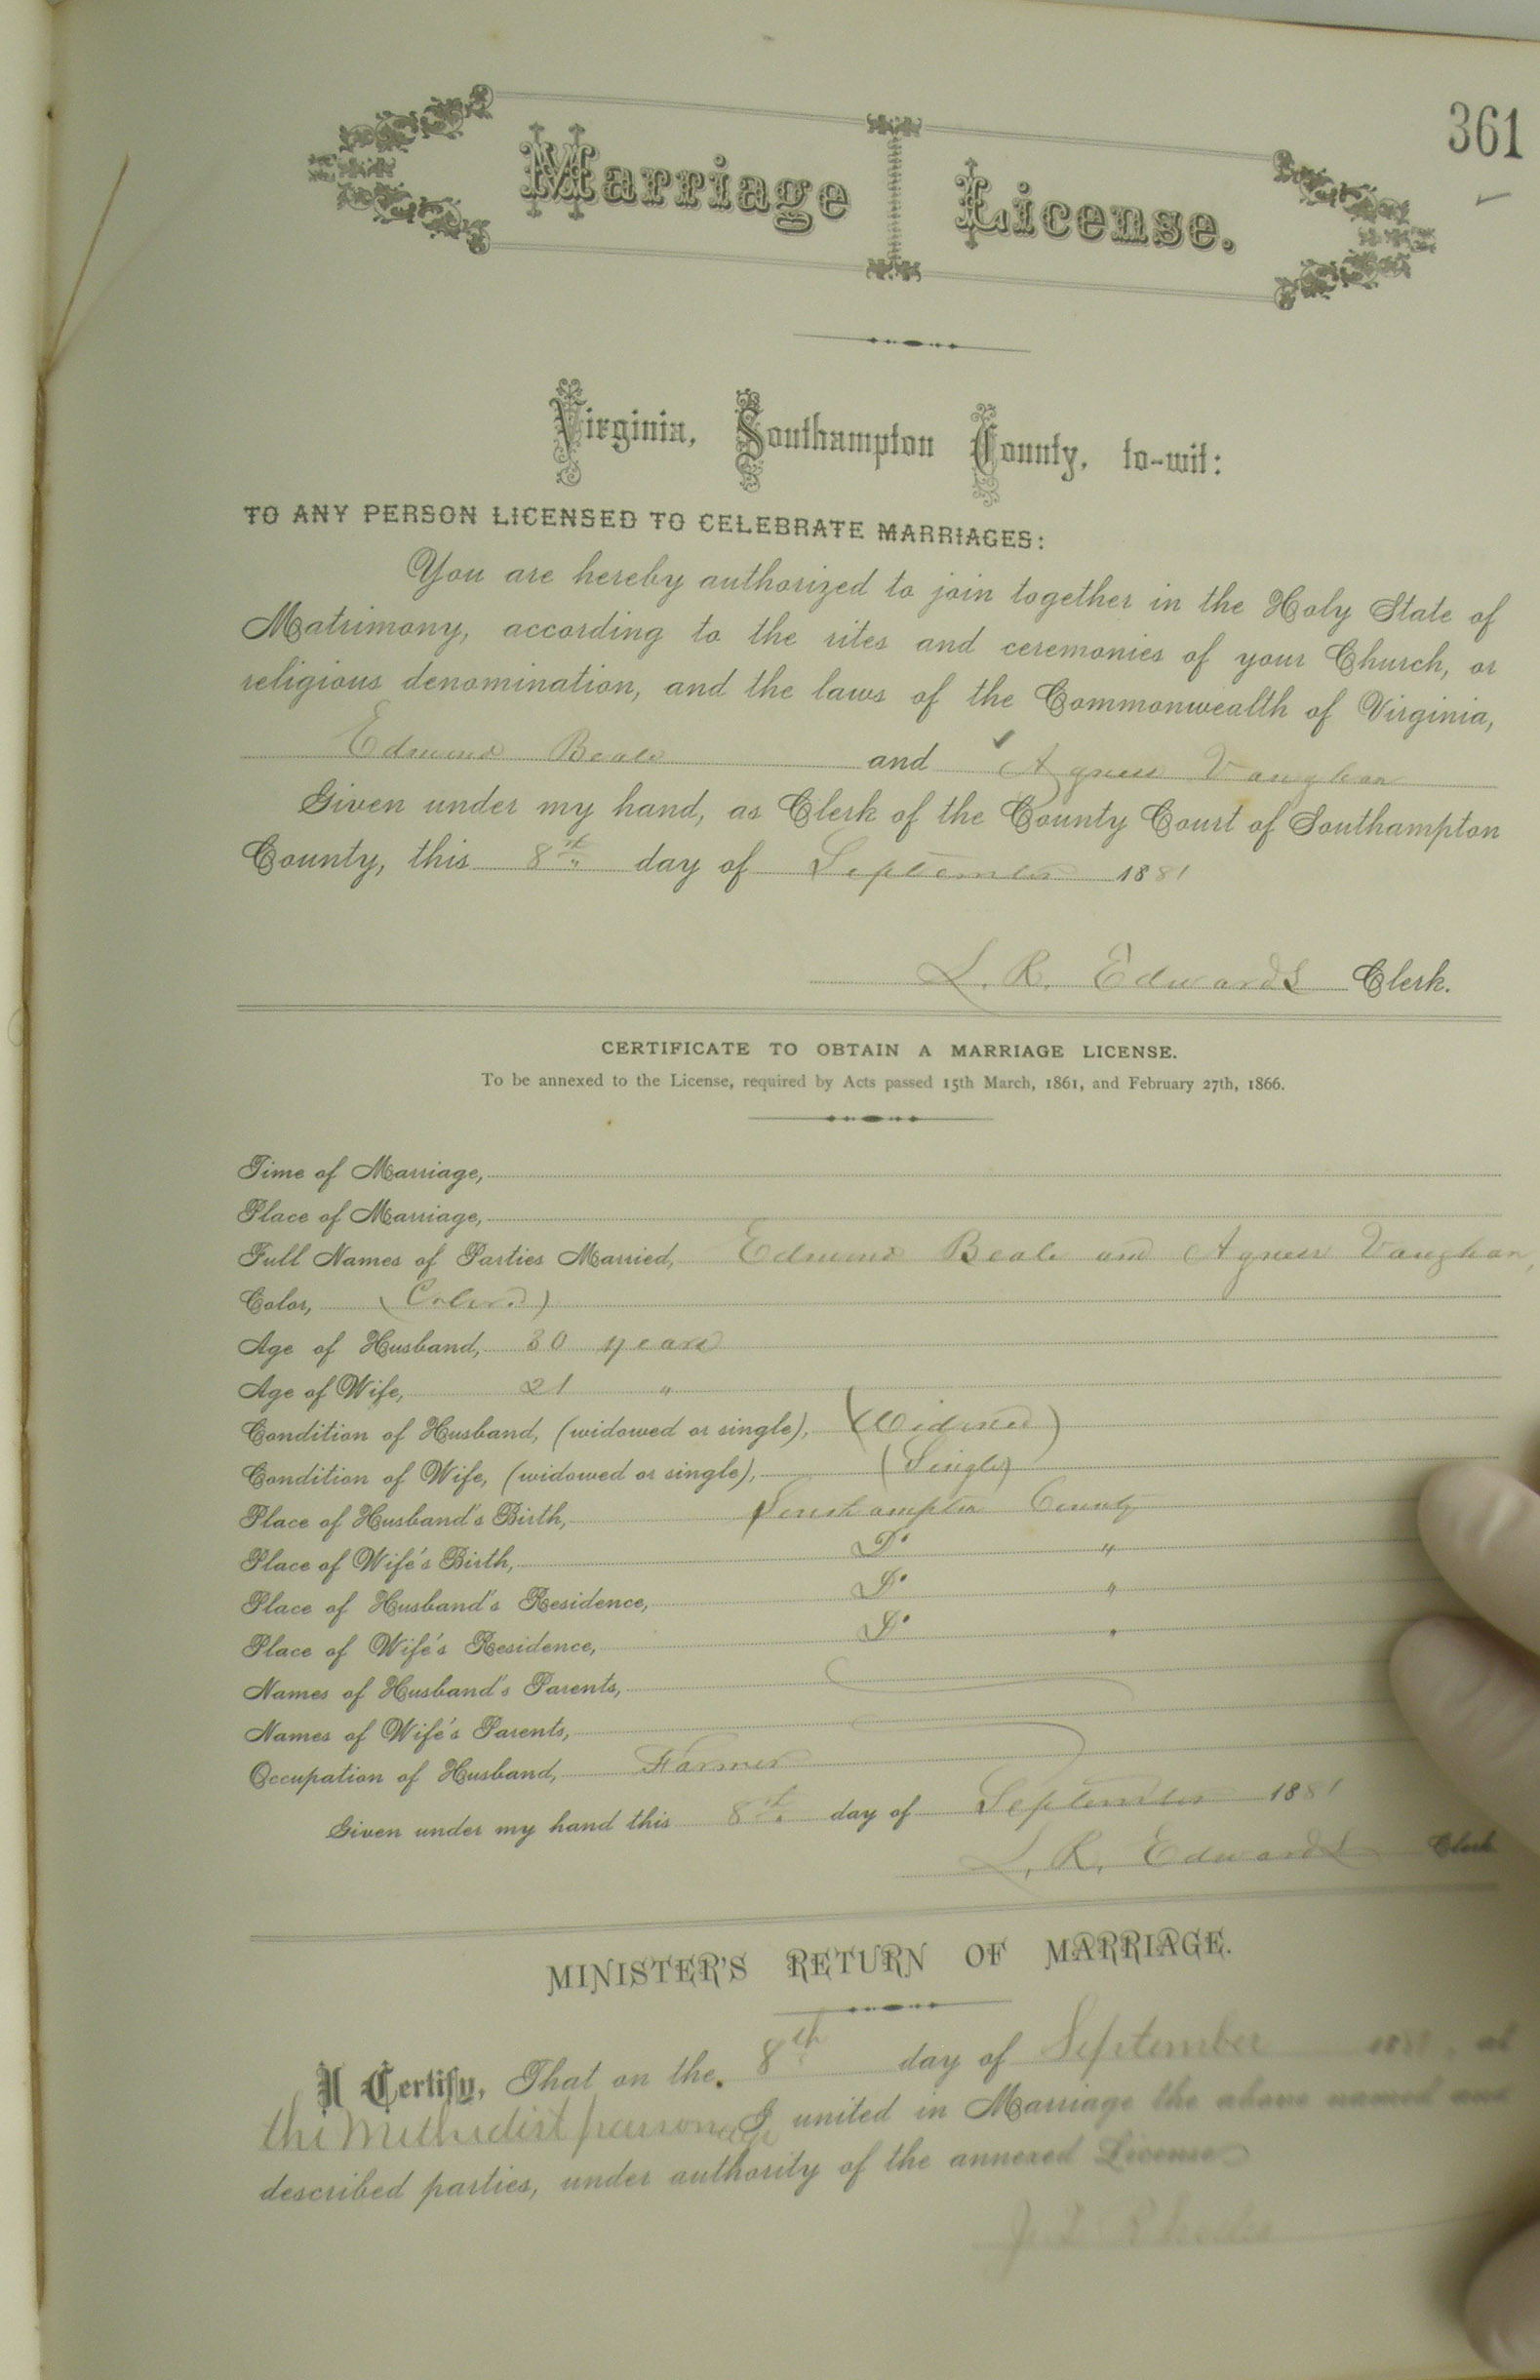 361
Marriage License.
Virginia, Southampton County, to-wit:
TO ANY PERSON LICENSED TO CELEBRATE MARRIAGES:
You are hereby authorized to join together in the Holy State of
Matrimony, according to the rites and ceremonies of your Church, or
religious denomination, and the laws of the Commonwealth of Virginia,
Edmund Beale and Agness Vaughan
Given under my hand, as Clerk of the County Court of Southampton
County, this 8th day of September 1881
L. R. Edwards Clerk.
CERTIFICATE TO OBTAIN A MARRIAGE LICENSE.
To be annexed to the License, required by Acts passed 15th March, 1861, and February 27th, 1866.
Time of Marriage,
Place of Marriage,
Full Names of Parties Married, Edmund Beale and Agness Vaughan,
Color, (Colored)
Age of Husband, 30 years
Age of Wife, 21 "
Condition of Husband, (widowed or single), (Widowed)
Condition of Wife, (widowed or single), (Single)
Place of Husband's Birth, Southampton County
Place of Wife's Birth, Do "
Place of Husband's Residence, Do "
Place of Wife's Residence, Do "
Names of Husband's Parents,
Names of Wife's Parents,
Occupation of Husband, Farmer
Given under my hand this 8th day of September 1881
L. R. Edwards Clerk
MINISTER'S RETURN OF MARRIAGE.
I Certify, That on the 8th day of September 1881, at
the Methodist parsonage I united in Marriage the above named and
described parties, under authority of the annexed License